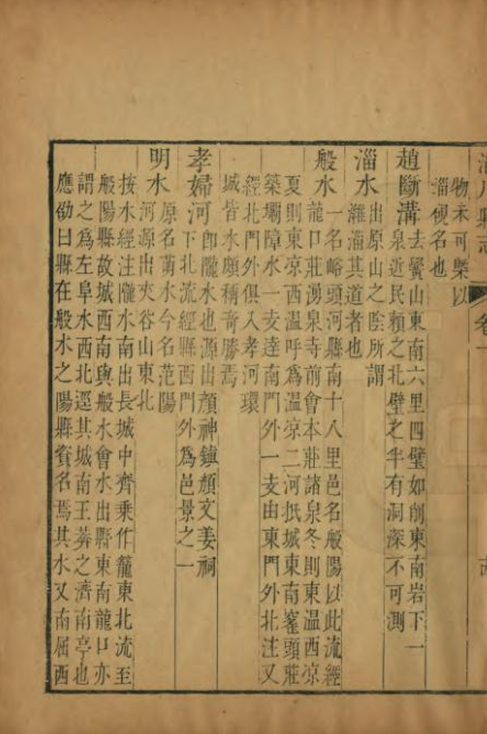 淄川縣志
卷一
物未可槩以
淄視名也
趙斷溝去黌山東南六里四壁如削東南岩下一
泉近民賴之北壁之半有洞深不可測
淄水出原山之陰所謂
濰淄其道者也
般水一名峪頭河縣南十八里邑名般陽以此流經
龍口莊湧泉寺前會本莊諸泉冬則東溫西凉
夏則東凉西溫呼爲溫凉二河抵城東南窰頭莊
築壩障水一支達南門外一支由東門外北注又
經北門外俱入孝河環
城皆水頗稱奇勝焉
孝婦河卽隴水也源出顏神鎮顏文姜祠
下北流經縣西門外爲邑景之一
明水原名萌水今名范陽
河源出夾谷山東北
按水經注隴水南出長城中齊乘作籠東北流至
般陽縣故城西南與般水會水出縣東南龍口亦
謂之爲左阜水西北逕其城南王莽之濟南亭也
應劭曰縣在般水之陽縣資名焉其水又南屈西